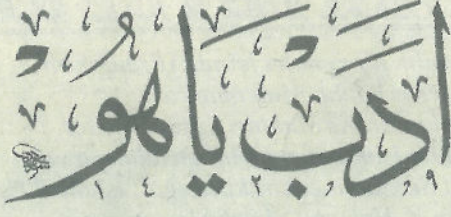 ادَبْ يَا هُوْ